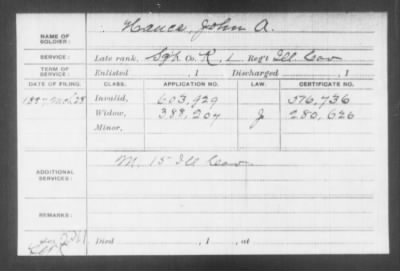 NAME OF SOLDIER: Hance, John A.
SERVICE: Late rank, Sgt Co. K, 1 Reg't Ill Cav
TERM OF SERVICE: Enlisted , 1 Discharged , 1
DATE OF FILING. CLASS. APPLICATION NO. LAW. CERTIFICATE NO.
Invalid, 603,929 376,736
Widow, 388,204 J 280,626
Minor,
ADDITIONAL SERVICES: M. 15 Ill Cav
REMARKS:
Died , 1 , at